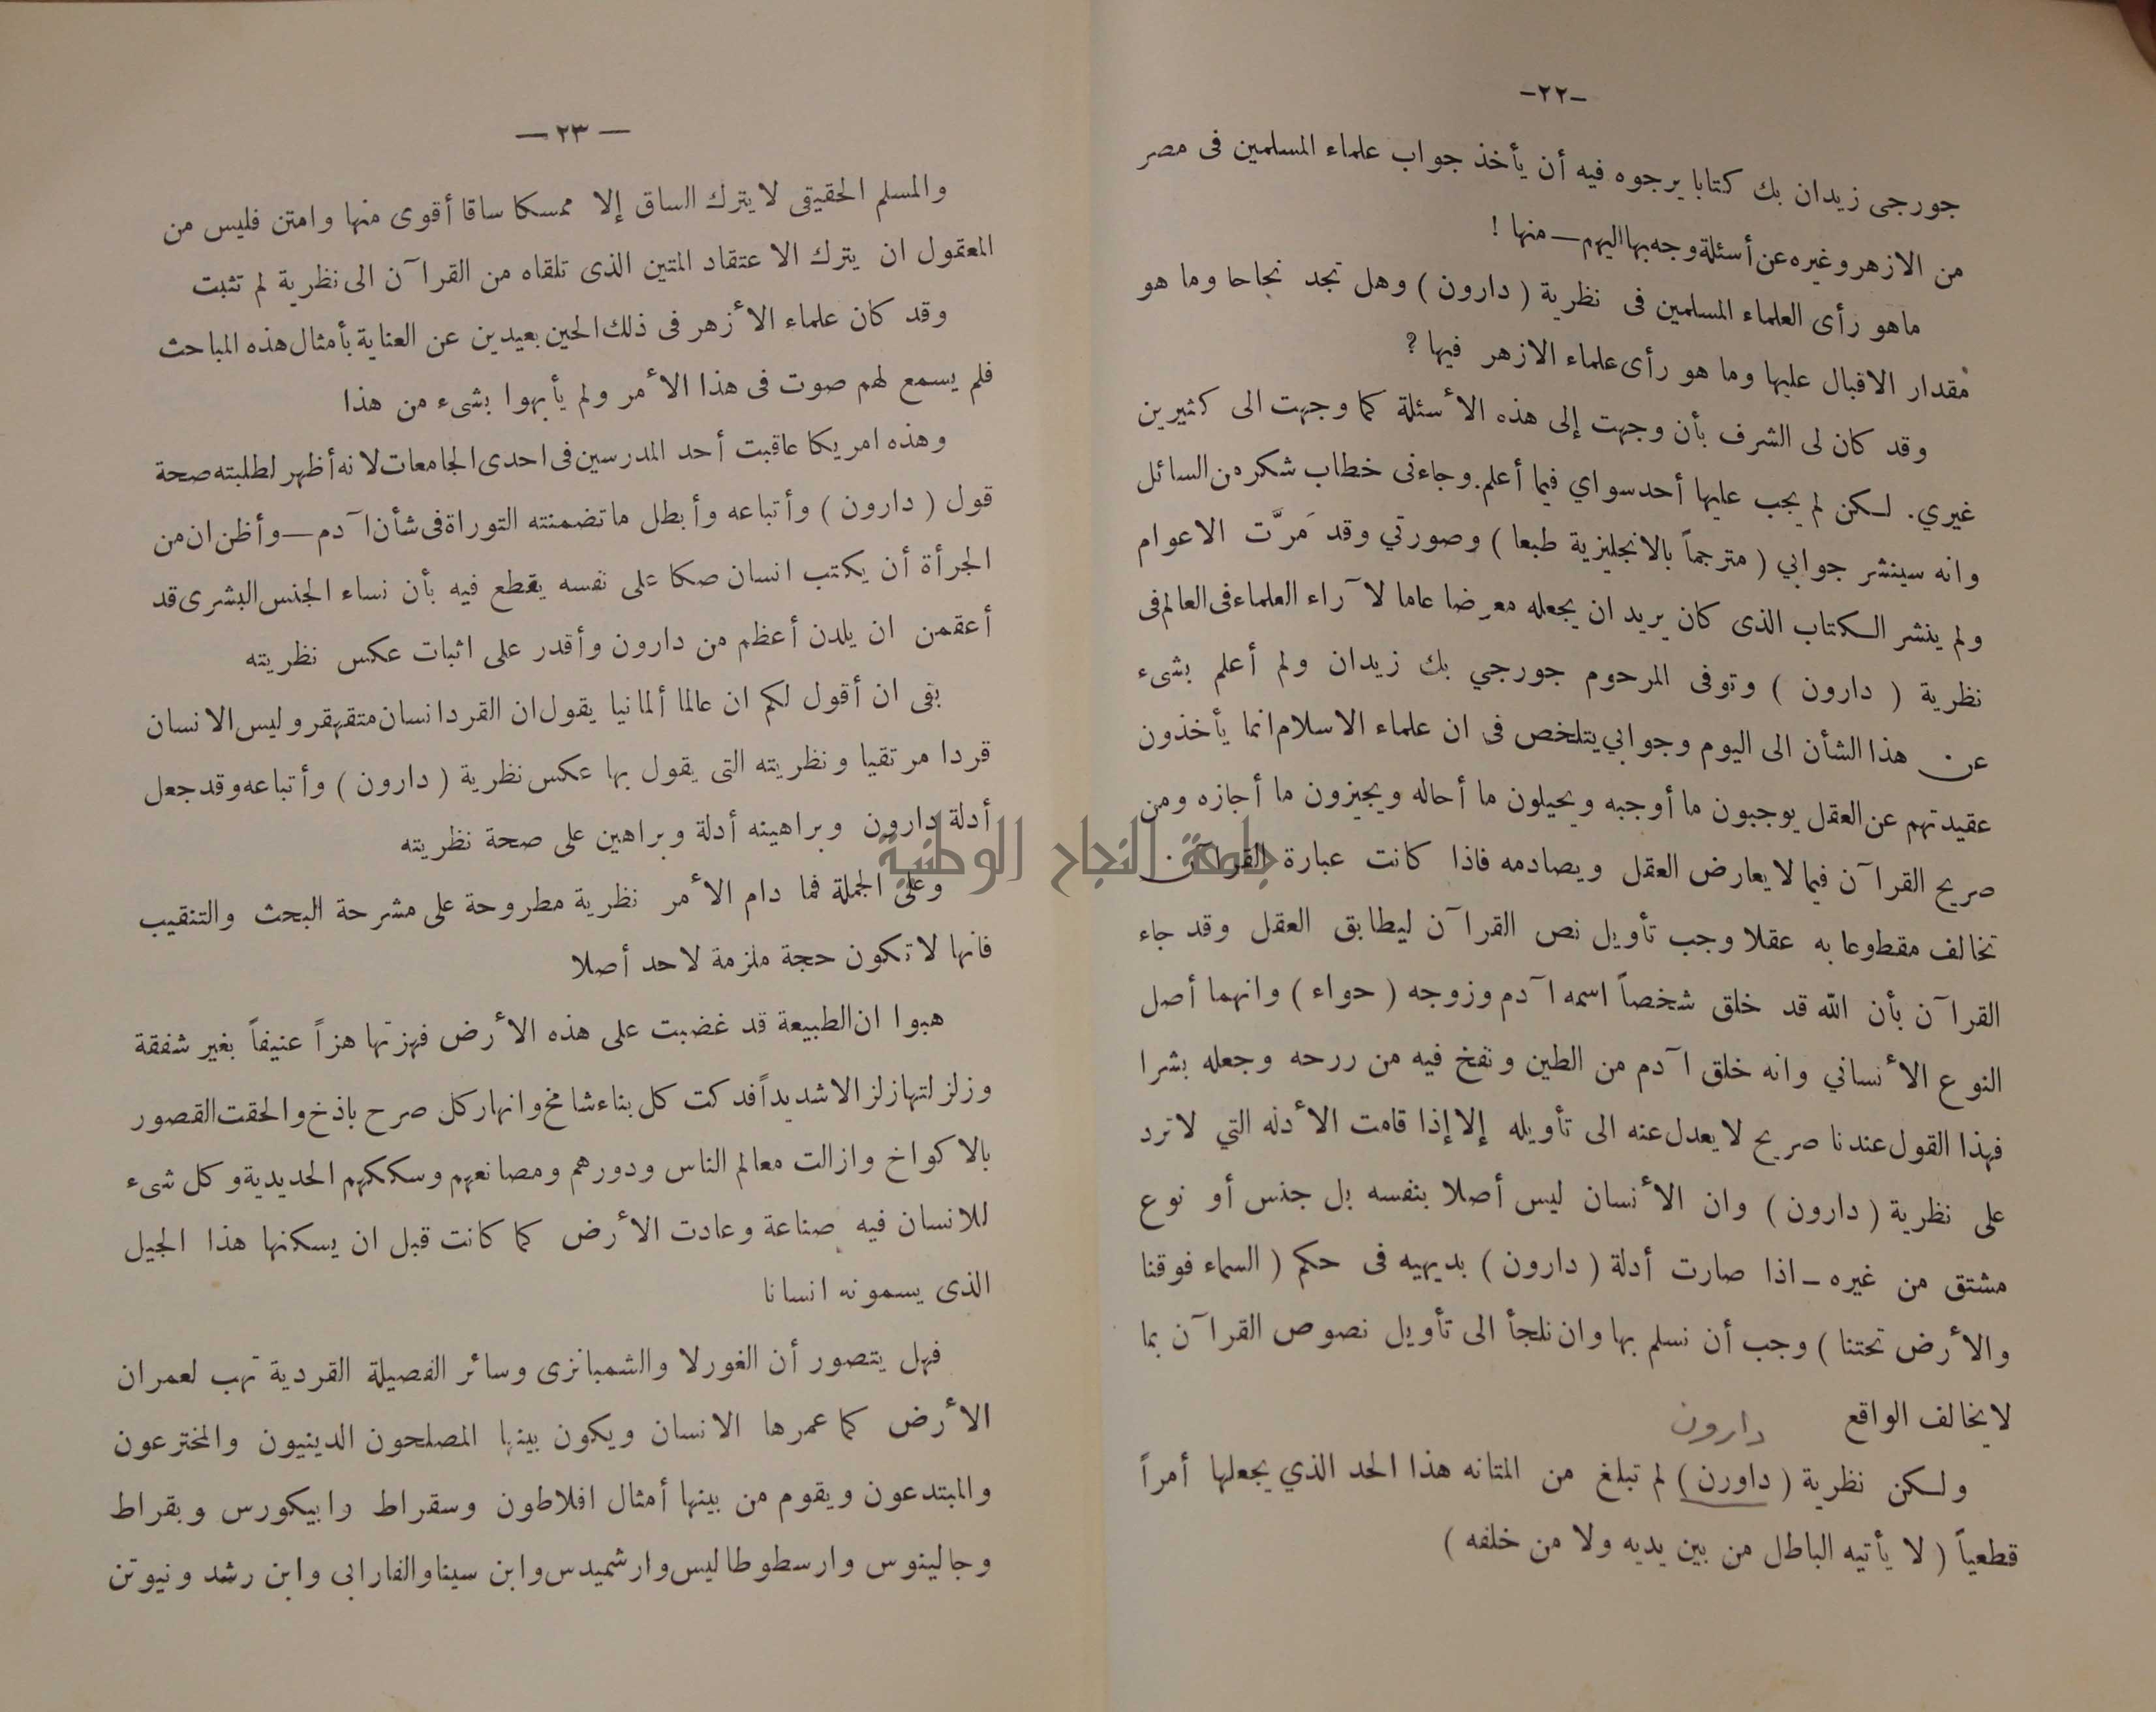 -٢٢-
جورجى زيدان بك كتابا يرجوه فيه أن يأخذ جواب علماء المسلمين فى مصر
من الازهر وغيره عن أسئلة وجه بها اليهم — منها !
ماهو رأى العلماء المسلمين فى نظرية ( دارون ) وهل تجد نجاحا وما هو
مقدار الاقبال عليها وما هو رأى علماء الازهر فيها ؟
وقد كان لى الشرف بأن وجهت إلى هذه الأسئلة كما وجهت الى كثيرين
غيري. لكن لم يجب عليها أحد سواي فيما أعلم. وجاءنى خطاب شكر من السائل
وانه سينشر جوابي ( مترجماً بالانجليزية طبعا ) وصورتي وقد مَرَّت الاعوام
ولم ينشر الكتاب الذى كان يريد ان يجعله معرضا عاما لآراء العلماء فى العالم فى
نظرية ( دارون ) وتوفى المرحوم جورجي بك زيدان ولم أعلم بشىء
عن هذا الشأن الى اليوم وجوابي يتلخص فى ان علماء الاسلام انما يأخذون
عقيدتهم عن العقل يوجبون ما أوجبه ويحيلون ما أحاله ويجيزون ما أجازه ومن
صريح القرآن فيما لا يعارض العقل ويصادمه فاذا كانت عبارة القرآن
تخالف مقطوعا به عقلا وجب تأويل نص القرآن ليطابق العقل وقد جاء
القرآن بأن الله قد خلق شخصاً اسمه آدم وزوجه ( حواء ) وانهما أصل
النوع الأنساني وانه خلق آدم من الطين ونفخ فيه من ررحه وجعله بشرا
فهذا القول عندنا صريح لا يعدل عنه الى تأويله إلا إذا قامت الأدله التي لاترد
على نظرية ( دارون ) وان الأنسان ليس أصلا بنفسه بل جنس أو نوع
مشتق من غيره - اذا صارت أدلة ( دارون ) بديهيه فى حكم ( السماء فوقنا
والأرض تحتنا ) وجب أن نسلم بها وان نلجأ الى تأويل نصوص القرآن بما
لا يخالف الواقع
دارون
ولكن نظرية ( داورن ) لم تبلغ من المتانه هذا الحد الذي يجعلها أمراً
قطعياً ( لا يأتيه الباطل من بين يديه ولا من خلفه )
— ٢٣ —
والمسلم الحقيقى لا يترك الساق إلا ممسكا ساقا أقوى منها وامتن فليس من
المعقول ان يترك الاعتقاد المتين الذى تلقاه من القرآن الى نظرية لم تثبت
وقد كان علماء الأزهر فى ذلك الحين بعيدين عن العناية بأمثال هذه المباحث
فلم يسمع لهم صوت فى هذا الأمر ولم يأبهوا بشىء من هذا
وهذه امريكا عاقبت أحد المدرسين فى احدى الجامعات لانه أظهر لطلبته صحة
قول ( دارون ) وأتباعه وأبطل ماتضمنته التوراة فى شأن آدم — وأظن ان من
الجرأة أن يكتب انسان صكا على نفسه يقطع فيه بأن نساء الجنس البشرى قد
أعقمن ان يلدن أعظم من دارون وأقدر على اثبات عكس نظريته
بقى ان أقول لكم ان عالما ألمانيا يقول ان القرد انسان متقهقر وليس الانسان
قردا مرتقيا ونظريته التى يقول بها عكس نظرية ( دارون ) وأتباعه وقد جعل
أدلة دارون وبراهينه أدلة وبراهين على صحة نظريته
جامعة النجاح الوطنية
وعلى الجملة فما دام الأمر نظرية مطروحة على مشرحة البحث والتنقيب
فانها لا تكون حجة ملزمة لاحد أصلا
هبوا ان الطبيعة قد غضبت على هذه الأرض فهزتها هزاً عنيفاً بغير شفقة
وزلزلتها زلزالا شديداً فدكت كل بناء شامخ وانهار كل صرح باذخ والحقت القصور
بالاكواخ وازالت معالم الناس ودورهم ومصانعهم وسككهم الحديدية وكل شىء
للانسان فيه صناعة وعادت الأرض كما كانت قبل ان يسكنها هذا الجيل
الذى يسمونه انسانا
فهل يتصور أن الغورلا والشمبانزى وسائر الفصيلة القردية تهب لعمران
الأرض كما عمرها الانسان ويكون بينها المصلحون الدينيون والمخترعون
والمبتدعون ويقوم من بينها أمثال افلاطون وسقراط رابيكورس وبقراط
وجالينوس وارسطوطاليس وارشميدس وابن سينا والفارابى وابن رشد ونيوتن